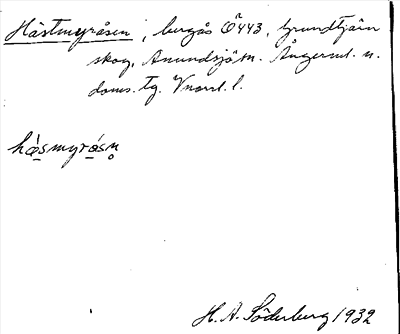 Hästmyråsen, bergås Ö443, Grundtjärn
skog, Anundsjö sn. Ångerml. n.
doms. tg. Vnorrl. l.
hå̀smyrǻsn̥
H. A. Söderberg 1932